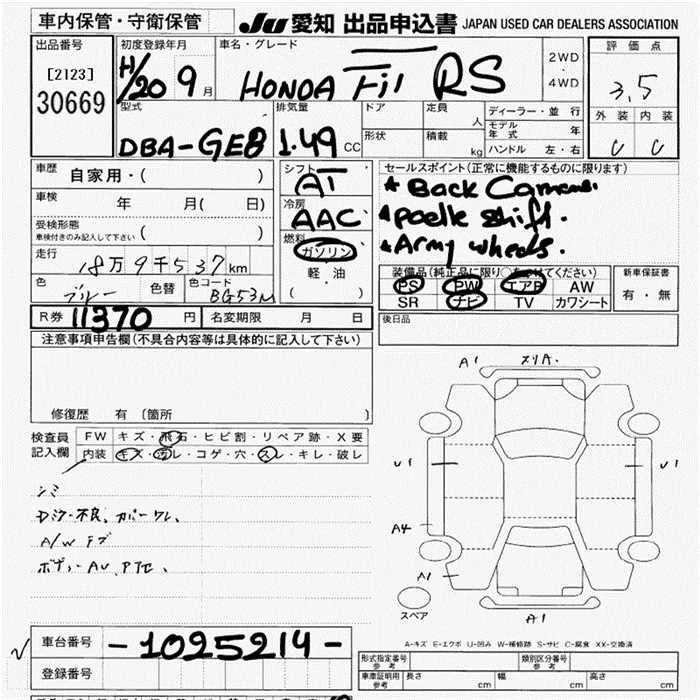 車内保管・守衛保管
JU 愛知 出品申込書 JAPAN USED CAR DEALERS ASSOCIATION
出品番号
[2123]
30669
初度登録年月
H/20 9 月
車名・グレード
HONDA Fit RS
2WD
・
4WD
評価点
3.5
外装 内装
C C
型式
DBA-GE8
排気量
1.49 CC
ドア
定員
人
形状
積載
kg
ディーラー・並行
モデル年式 年
ハンドル 左・右
車歴
自家用・( )
車検
年 月( 日)
受検形態
車検付きのみ記入して下さい ( )
走行
18万9千537km
色
ブルー
色替
色コード
BG53M
シフト
AT
冷房
AAC
燃料
ガソリン
軽油
( )
セールスポイント(正常に機能するものに限ります)
★Back Camera.
★Padle shift.
★Army wheels.
装備品(純正品に限り○をつけてください)
PS PW エアB AW
SR ナビ TV カワシート
新車保証書
有・無
後日品
R券 11370 円
名変期限 月 日
注意事項申告欄(不具合内容等は具体的に記入して下さい)
修復歴 有 (箇所
検査員
記入欄
FW キズ・飛石・ヒビ割・リペア跡・X要
内装 キズ・汚レ・コゲ・穴・スレ・キレ・破レ
シミ
Dミラー不良、カバーワレ、
A/W キズ
ボディーAU、PTセ、
A1 メリA.
U1 U1
A4
A1
A1
スペア
A-キズ E-エクボ U-凹み W-補修跡 S-サビ C-腐食 XX-交換済
車台番号
-1025214-
登録番号
形式指定番号
参考
類別区分番号
参考
車庫証明用
参考
長さ cm 幅 cm 高さ cm